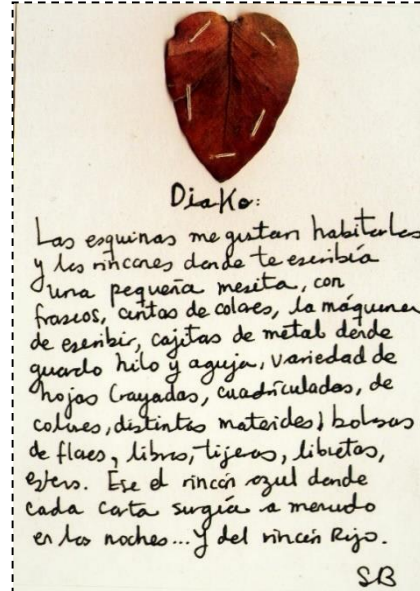 Diako:
Las esquinas me gustan habitarlas
y los rincones donde te escribía
una pequeña mesita, con
frascos, cintas de colores, la máquina
de escribir, cajitas de metal donde
guardo hilo y aguja, variedad de
hojas (rayadas, cuadriculadas, de
colores, distintos materides) bolsas
de flores, libros, tijeras, libretas,
esfero. Ese el rincón azul donde
cada carta surgía a menudo
en las noches... Y del rincón Rojo.
SB